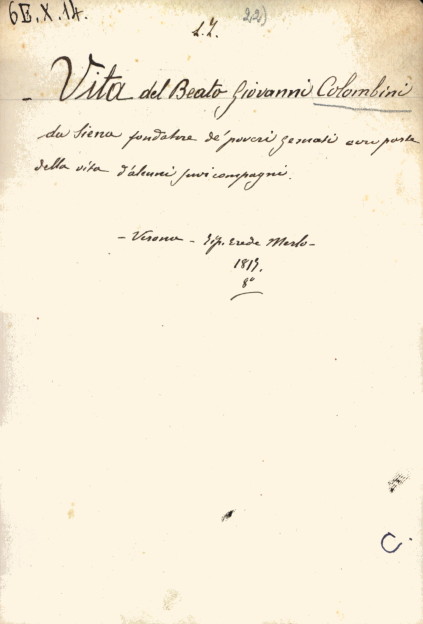 6E.X.14.
22)
- Vita del Beato Giovanni Colombini
da Siena fondatore de' poveri Gesuati con parte
della vita d'alcuni suoi compagni.
- Verona - Tip. Erede Merlo -
8°
C.